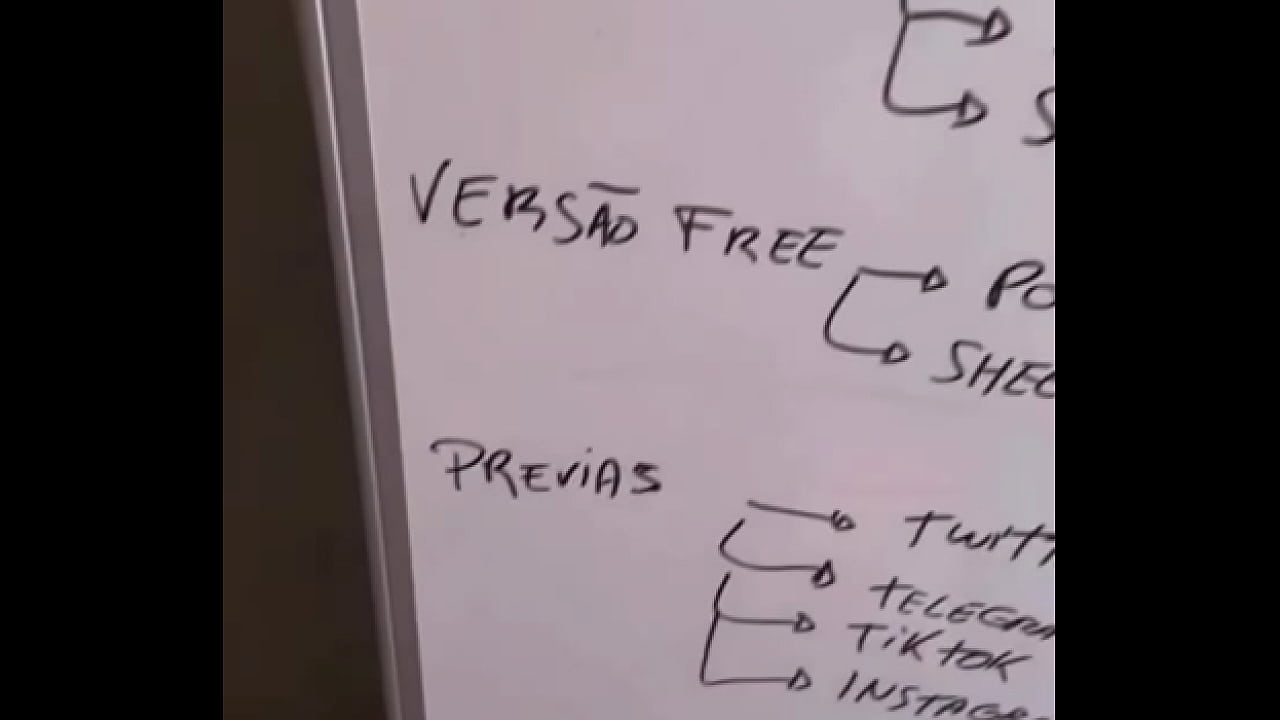 S
VERSÃO FREE
PO
SHEE
PREVIAS
TWITT
TELEGRA
TIKTOK
INSTAGR